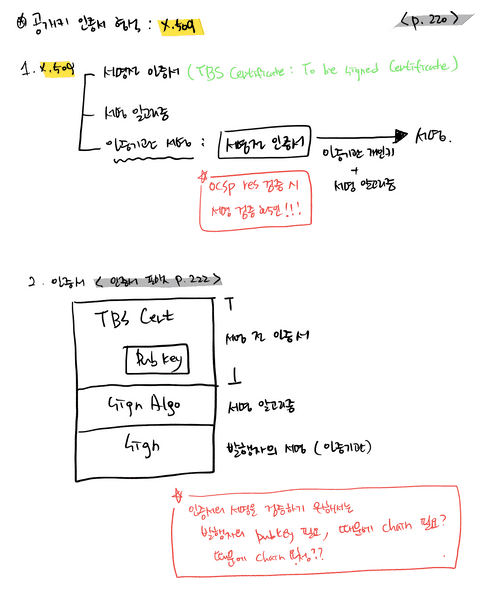 ※ 공개키 인증서 형식 : X.509
<p. 220>
1. X.509
서명전 인증서 (TBS Certificate : To be signed Certificate)
서명 알고리즘
인증기관 서명 : 서명전 인증서 → 서명.
인증기관 개인키
+
서명 알고리즘
☆ OCSP res 검증 시
서명 검증 하면!!!
2. 인증서 < 인증서 포맷 p.222 >
TBS Cert
Pub key
서명 전 인증서
Sign Algo
서명 알고리즘
Sign
발행자의 서명 (인증기관)
☆ 인증서의 서명을 검증하기 위해서는
발행자의 pubkey 필요, 때문에 chain 필요?
때문에 chain ??